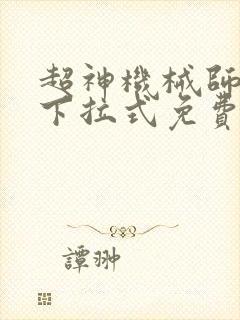 超神機械師
下拉式免費
譚翀